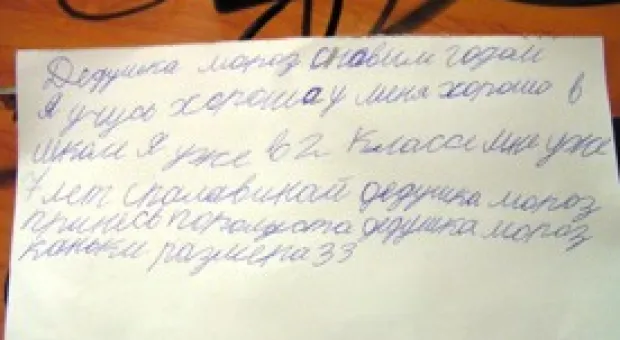 Дедушка мороз снавим годам
Я учусь хорошо а у меня хорошо в
школи Я уже в 2 Класси мне уже
7 лет сполавиной дедушка мороз
принесь поролуста дедушка мороз
каньки размера 33